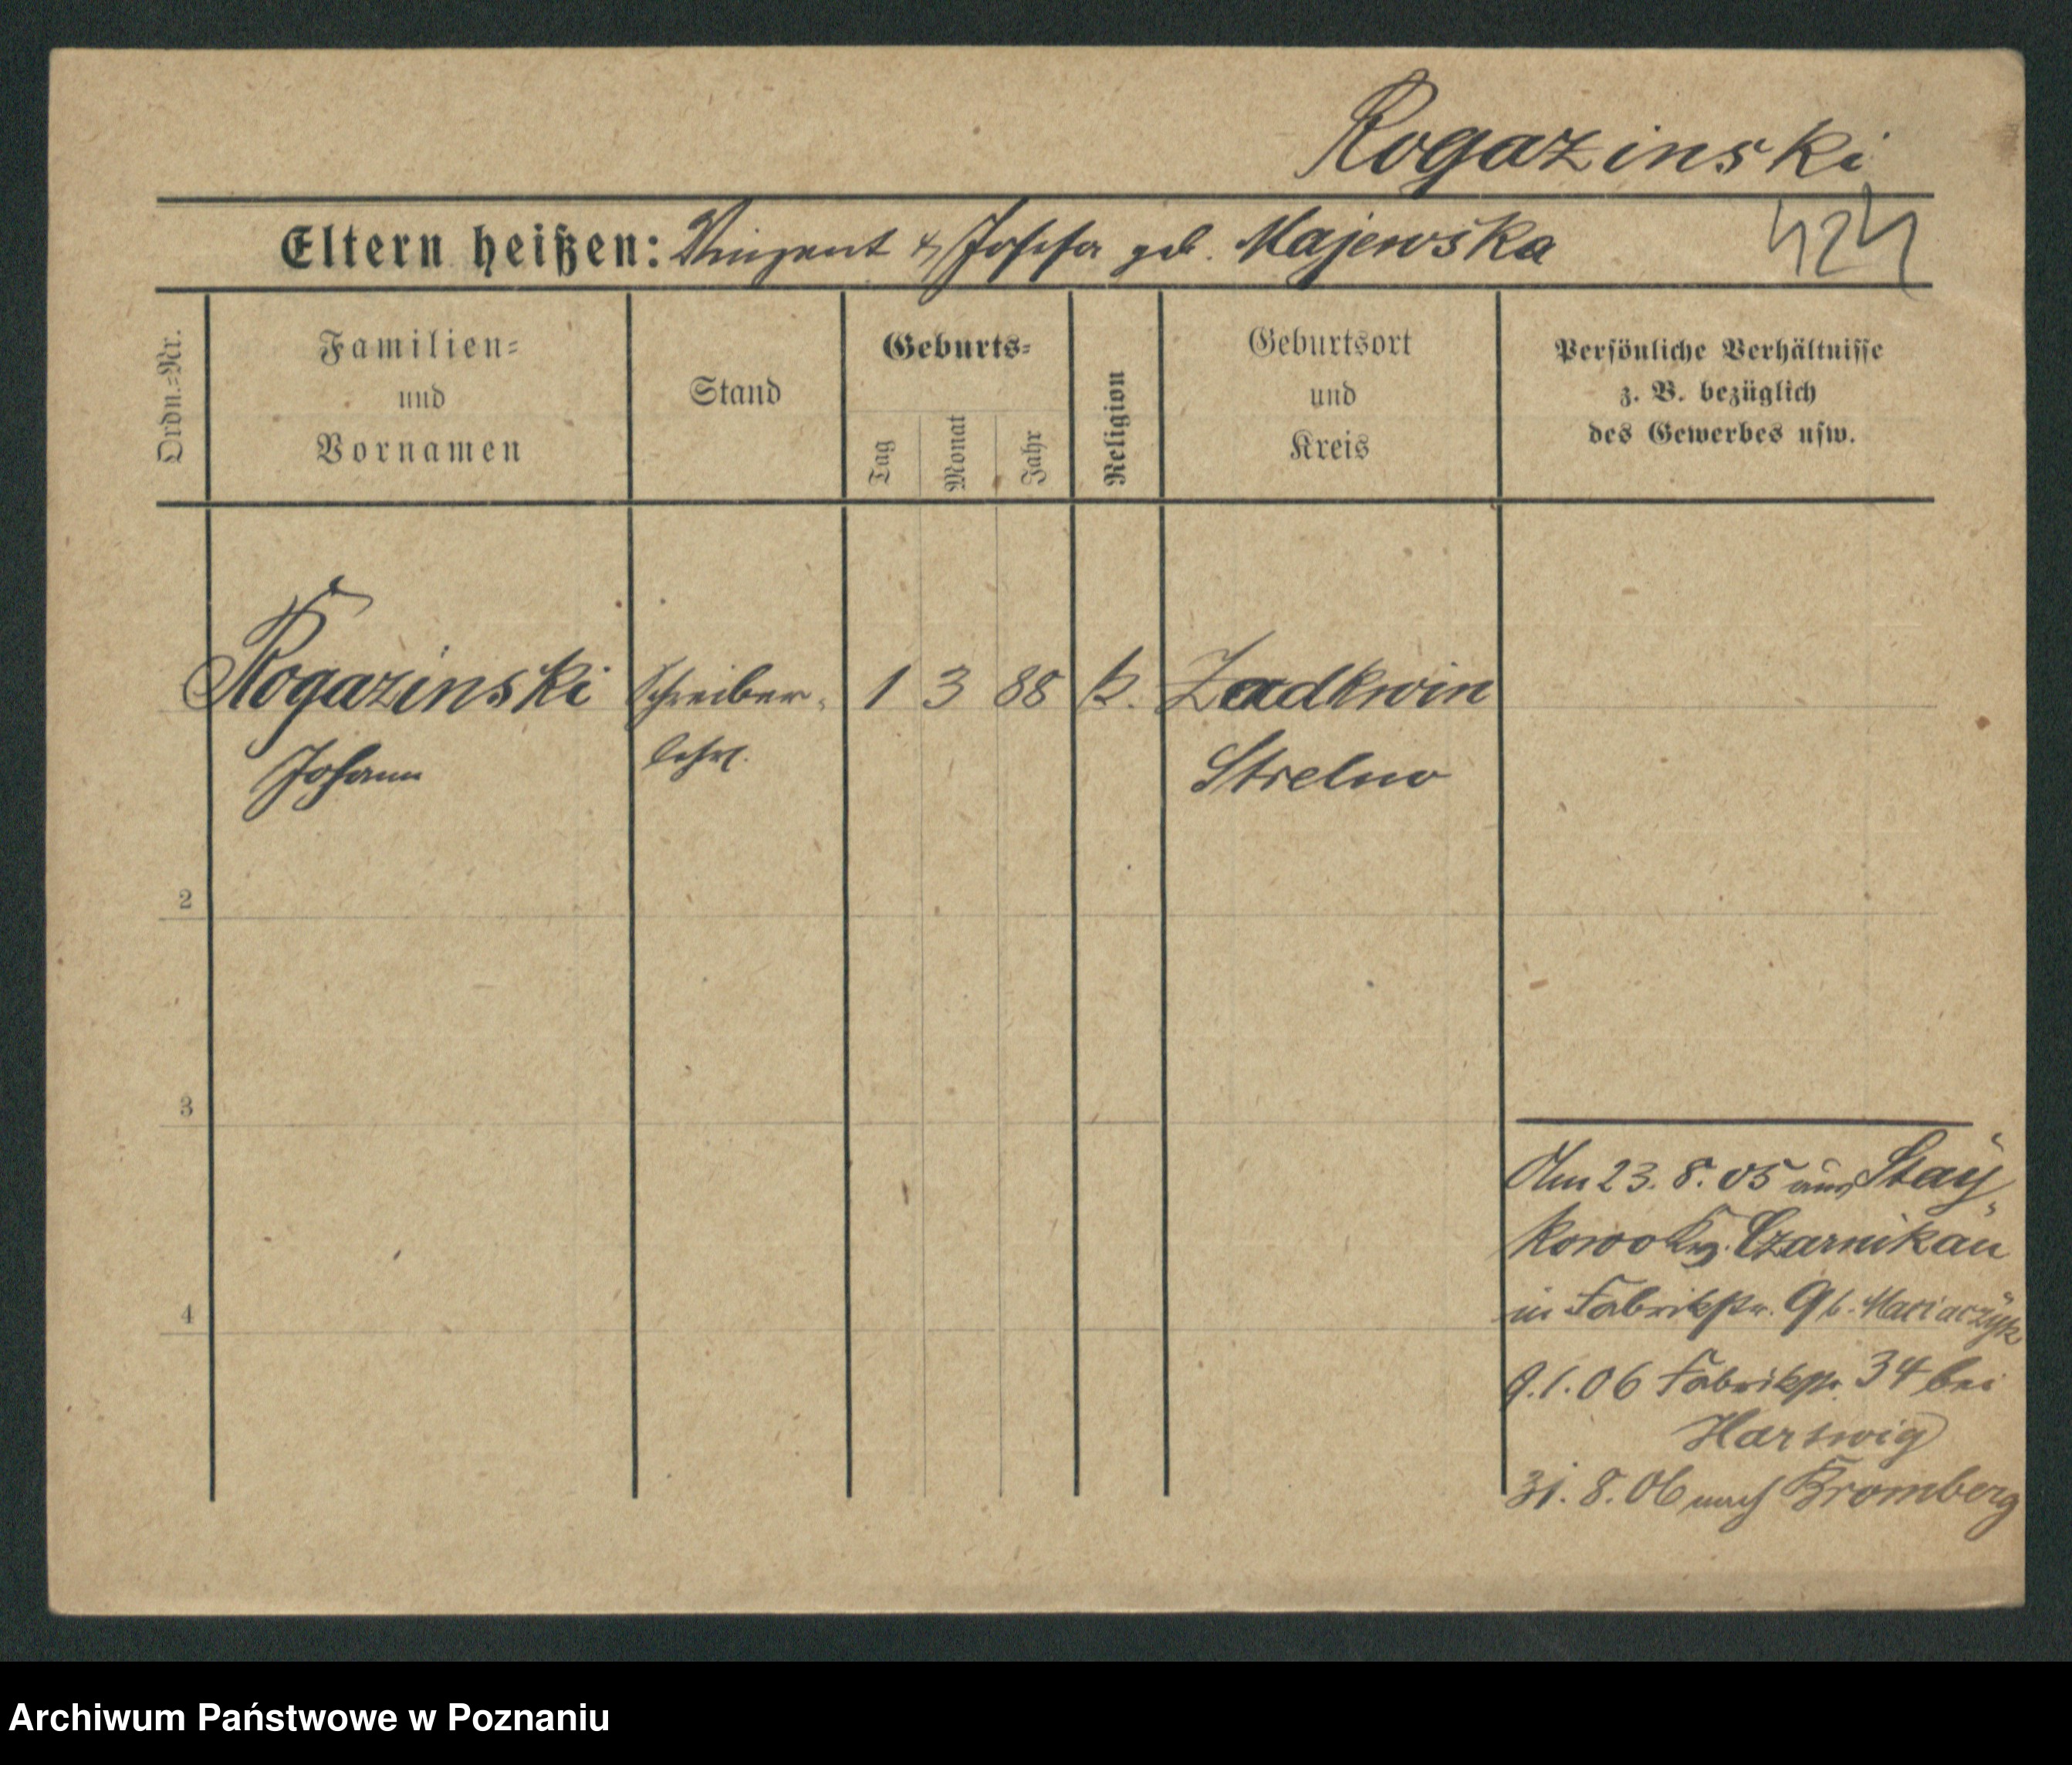 Rogazinski
Eltern heißen: Vinzent & Josefa geb. Majewska
424
Ordn.=Nr.
Familien=
und
Vornamen
Stand
Geburts=
Tag
Monat
Jahr
Religion
Geburtsort
und
Kreis
Persönliche Verhältnisse
z. B. bezüglich
des Gewerbes usw.
Rogazinski Schreiber- 1 3 88 k. Zadkwin
Johann lehrl. Strelno
2
3
4
Am 23. 8. 05 aus Stay-
kowo Krs. Czarnikau
in Fabrikstr. 9 b. Maciaczyk
9.1.06 Fabrikstr. 34 bei
Hartwig
31. 8. 06 nach Bromberg
Archiwum Państwowe w Poznaniu